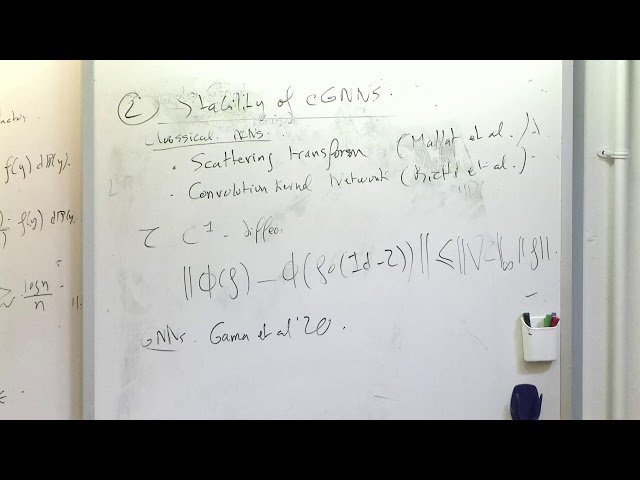 ② Stability of cGNNs.
Classical CNNs.
• Scattering transform (Mallat et al.)
• Convolution Kernel Network (Bietti et al.)
τ C¹-diffeo.
||Φ(f) - Φ(f∘(Id-τ))|| ≤ ||∇τ||∞ ||f||.
GNNs. Gama et al '20.
f(y) dP(y)
f(y) dP(y)
log n / n